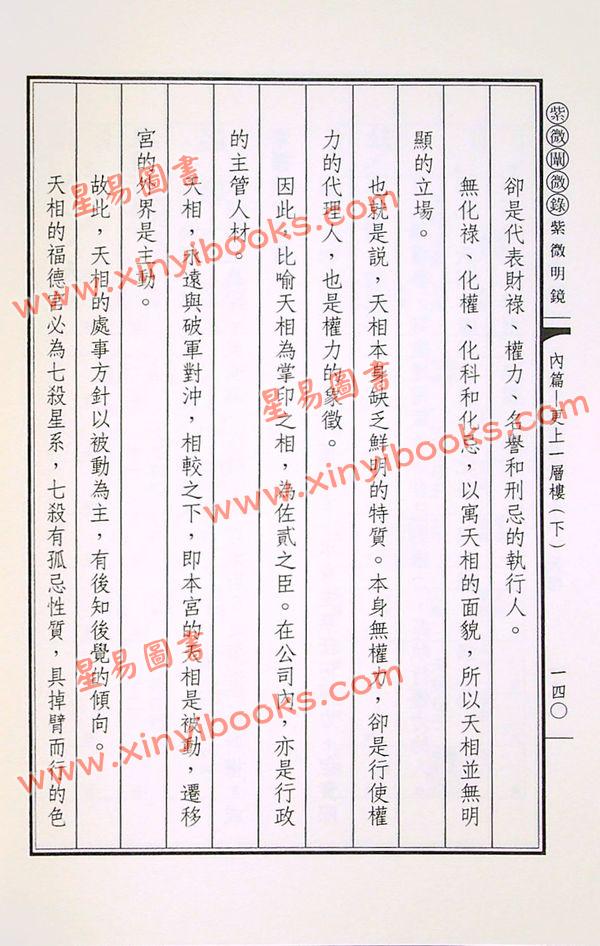 紫微闡微錄 紫微明鏡
內篇—更上一層樓（下）
一四〇
卻是代表財祿、權力、名譽和刑忌的執行人。
無化祿、化權、化科和化忌，以寓天相的面貌，所以天相並無明
顯的立場。
也就是說，天相本身缺乏鮮明的特質。本身無權力，卻是行使權
力的代理人，也是權力的象徵。
因此，比喻天相為掌印之相，為佐貳之臣。在公司內，亦是行政
的主管人材。
天相，永遠與破軍對沖，相較之下，即本宮的天相是被動，遷移
宮的外界是主動。
故此，天相的處事方針以被動為主，有後知後覺的傾向。
天相的福德宮必為七殺星系，七殺有孤忌性質，具掉臂而行的色
星易圖書
www.xinyibooks.com
星易圖書
www.xinyibooks.com
星易圖書
www.xinyibooks.com